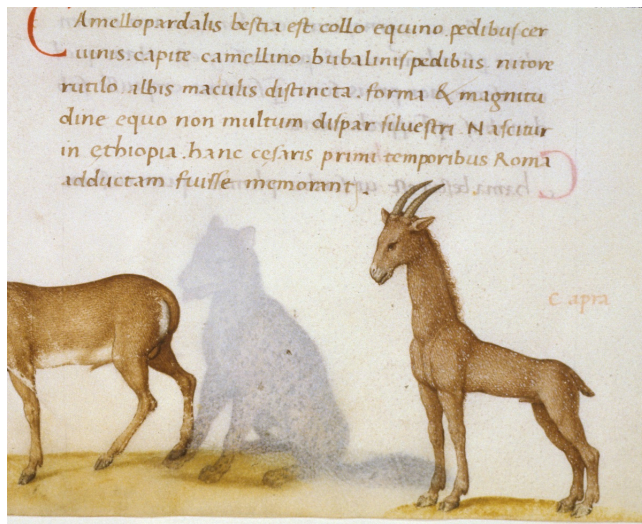 Camellopardalis bestia est collo equino pedibus cer
uinis capite camellino bubalinis pedibus nitore
rutilo albis maculis distincta. forma & magnitu
dine equo non multum dispar siluestri. Nascitur
in ęthiopia. hanc cęsaris primi temporibus Roma
adductam fuisse memorant.
c. apra